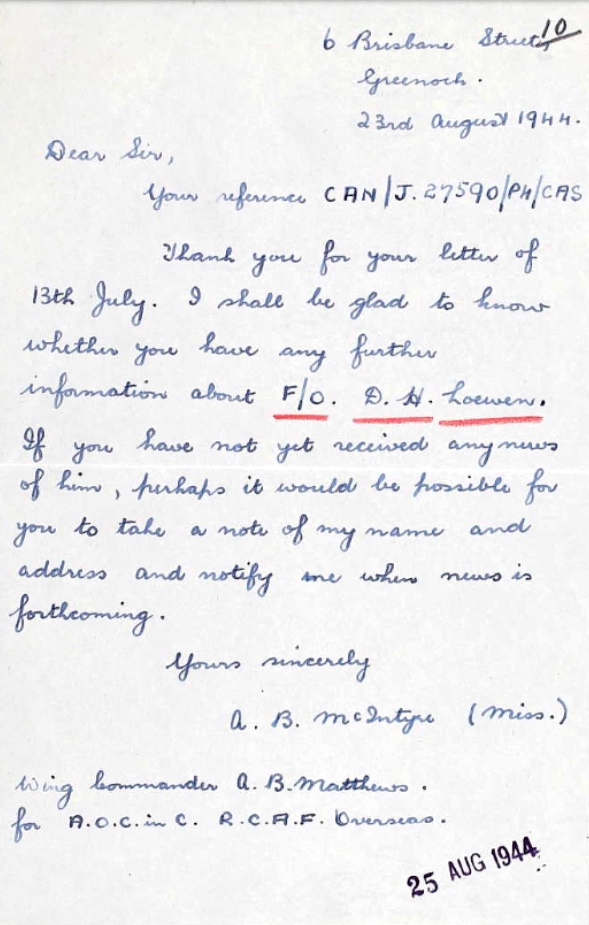 10
6 Brisbane Street,
Greenock.
23rd August 1944.
Dear Sir,
Your reference CAN/J.27590/P4/CAS
Thank you for your letter of
13th July. I shall be glad to know
whether you have any further
information about F/O. D. H. Loewen.
If you have not yet received any news
of him, perhaps it would be possible for
you to take a note of my name and
address and notify me when news is
forthcoming.
Yours sincerely
A. B. McIntyre (Miss.)
Wing Commander A. B. Matthews.
for A.O.C. in C. R.C.A.F. Overseas.
25 AUG 1944